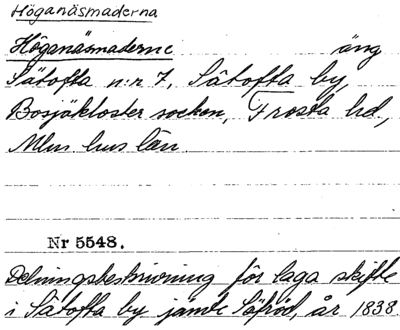 Höganäsmaderna
Höganäsmaderne äng
Sätofta n:r 7, Sätofta by,
Bosjökloster socken, Frosta hd,
Mlm hus län.
Nr 5548.
Delningsbeskrivning för laga skifte
i Sätofta by jämte Säfröd, år 1838.